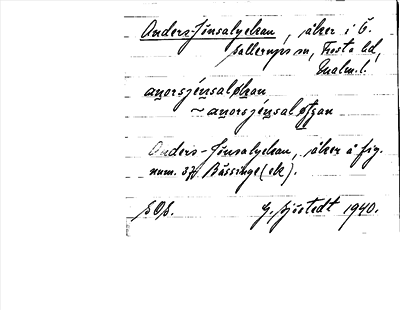 Anders-Jönsalyckan, åker i Ö.
Sallerups sn, Frosta hd,
Malm. l.
anorsjénsaløkan
~ anorsjénsaløtjan
Anders-Jönsalyckan, åker å fig.
num. Bässinge (ek).
G. Sjöstedt 1940.